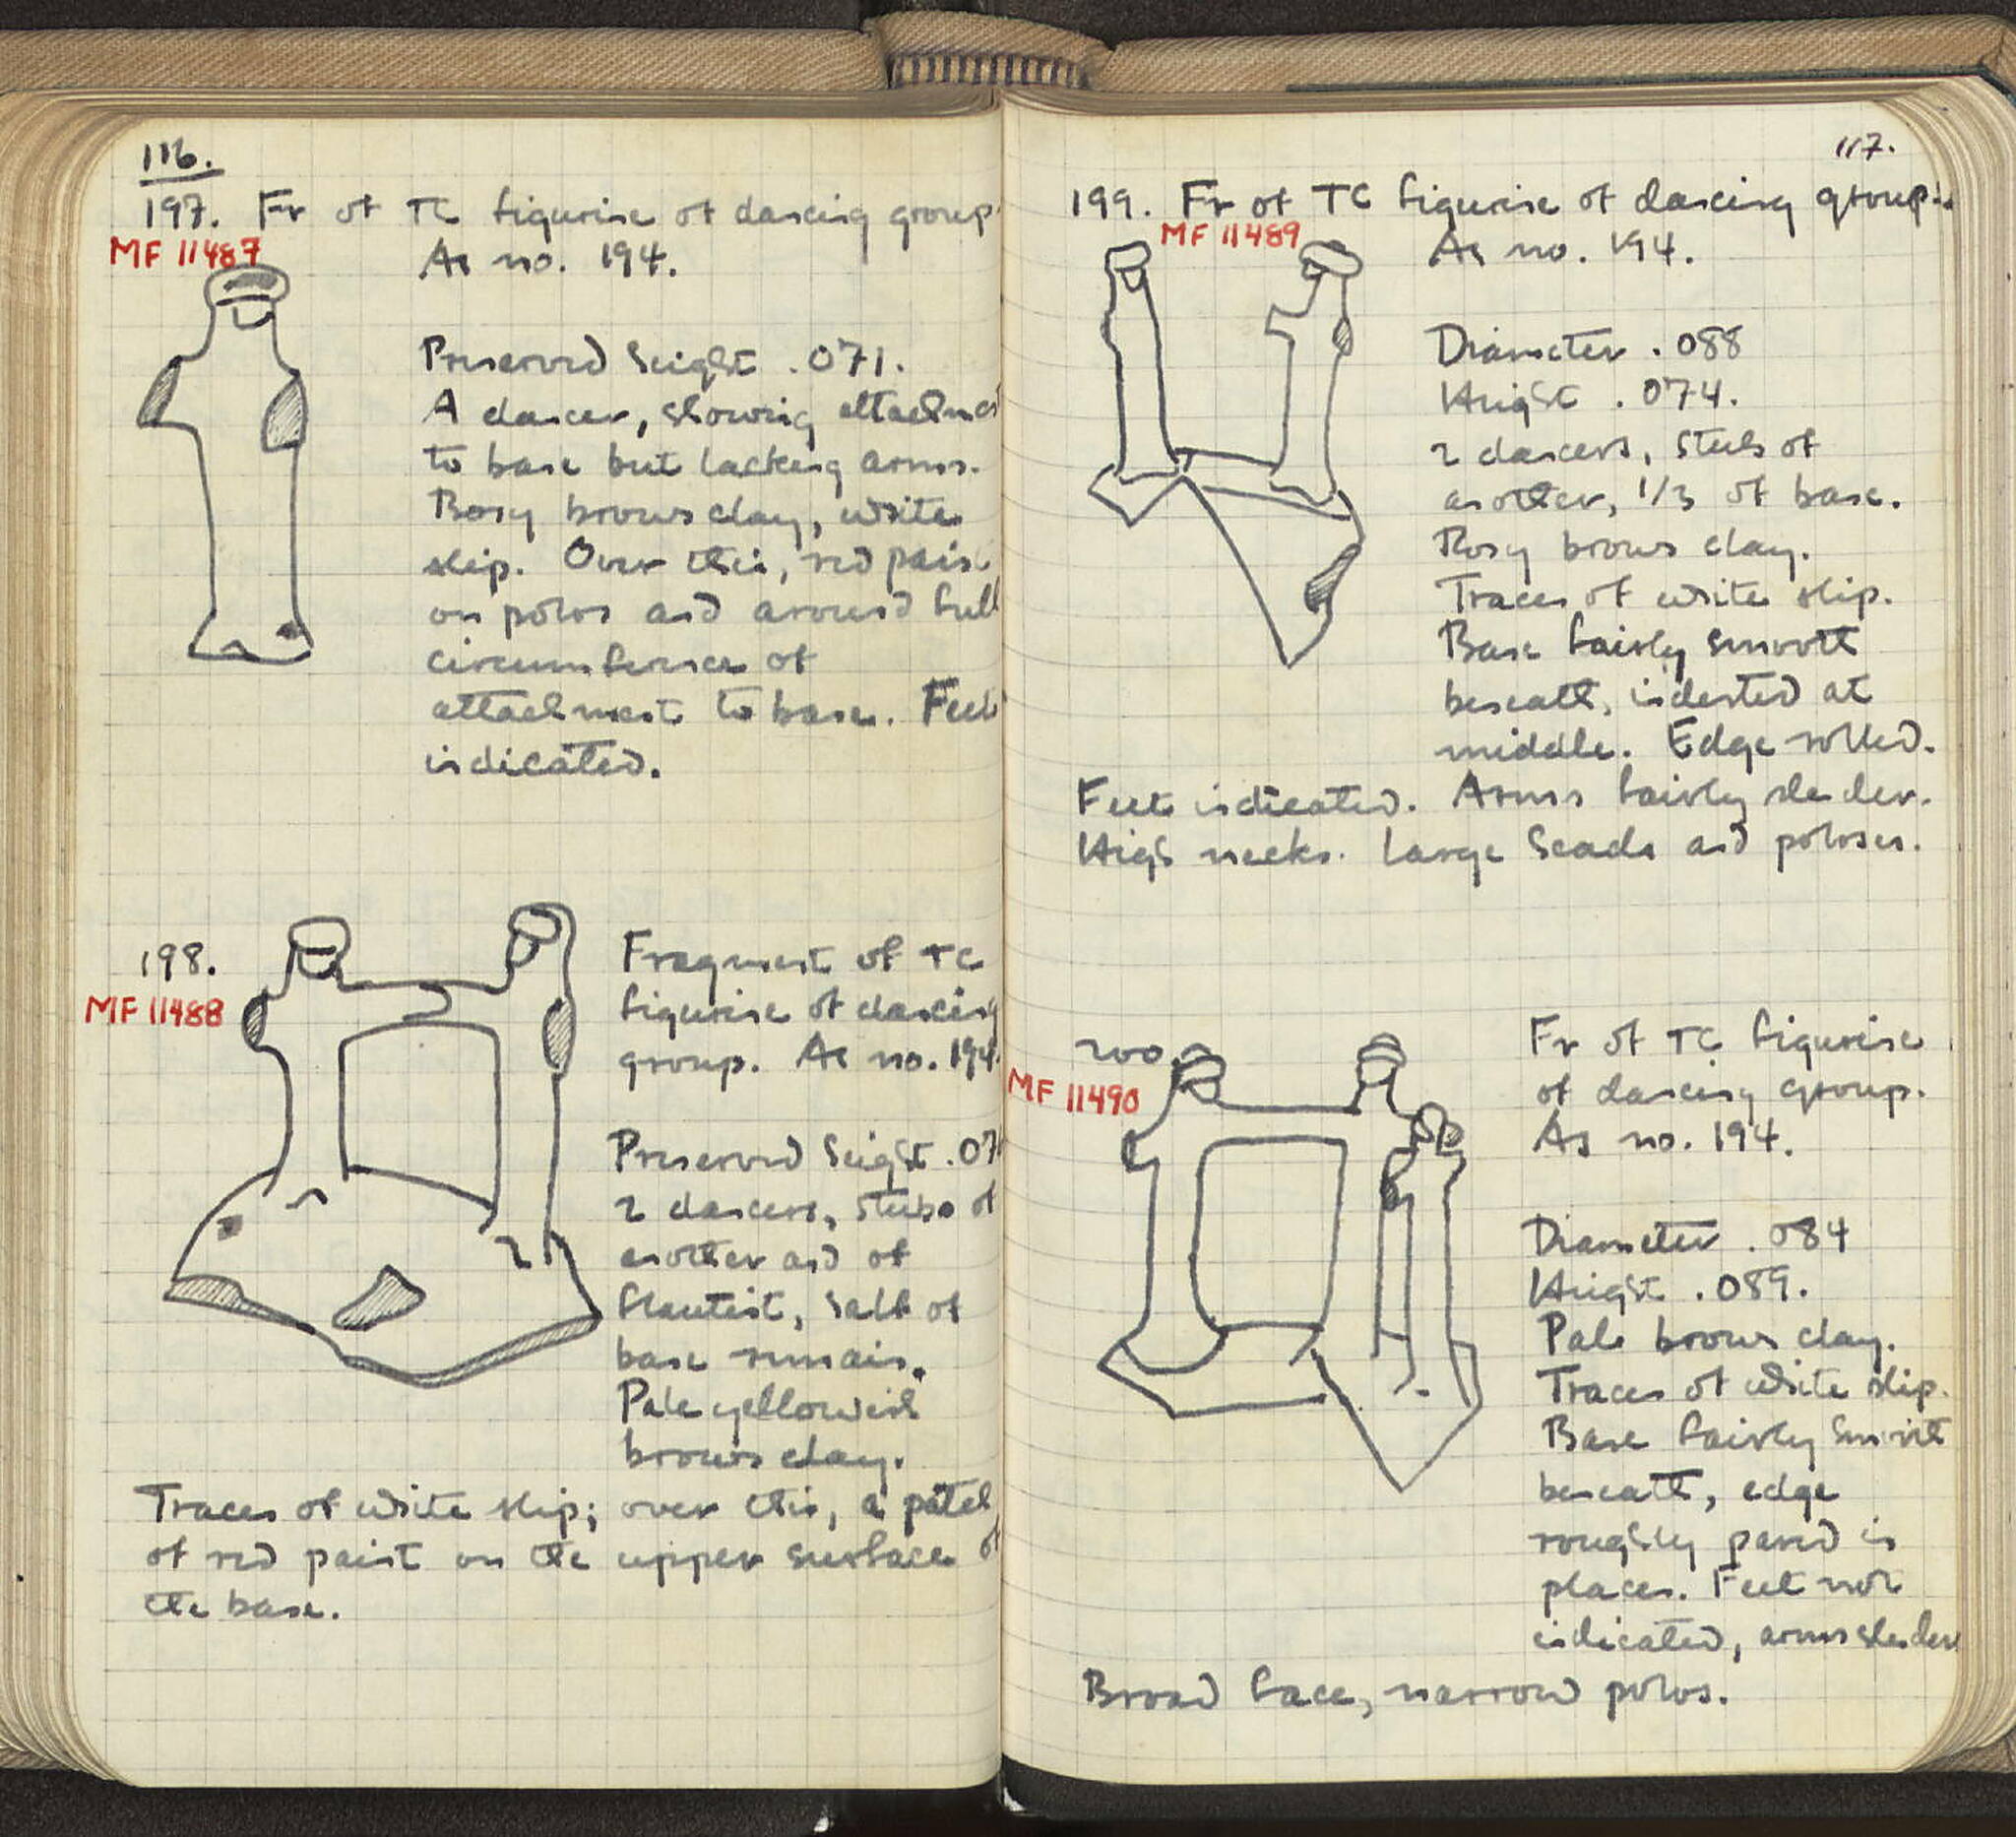 116.
197. Fr of TC figurine of dancing group.
MF 11487
As no. 194.
Preserved height .071.
A dancer, showing attachment
to base but lacking arms.
Rosy brown clay, white
slip. Over this, red paint
on polos and around full
circumference of
attachment to base. Feet
indicated.
198.
MF 11488
Fragment of TC
figurine of dancing
group. As no. 194.
Preserved height .07
2 dancers, stubs of
another and of
flautist, half of
base remain.
Pale yellowish
brown clay.
Traces of white slip; over this, a patch
of red paint on the upper surface of
the base.
117.
199. Fr of TC figurine of dancing group.
MF 11489
As no. 194.
Diameter .088
Height .074.
2 dancers, stubs of
another, 1/3 of base.
Rosy brown clay.
Traces of white slip.
Base fairly smooth
beneath, indented at
middle. Edge rolled.
Feet indicated. Arms fairly slender.
High necks. Large heads and poloses.
200
MF 11490
Fr of TC figurine
of dancing group.
As no. 194.
Diameter .084
Height .089.
Pale brown clay.
Traces of white slip.
Base fairly smooth
beneath, edge
roughly pared in
places. Feet not
indicated, arms slender
Broad face, narrow polos.